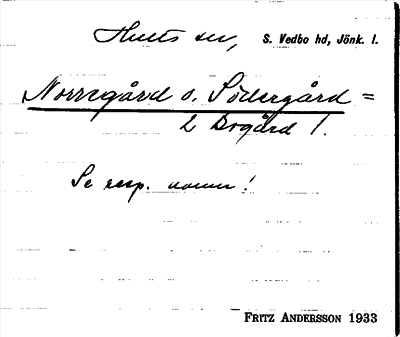 Hults sn, S. Vedbo hd, Jönk. l.
Norregård o. Södergård =
2 Bogård 1.
Se resp. namn!
FRITZ ANDERSSON 1933